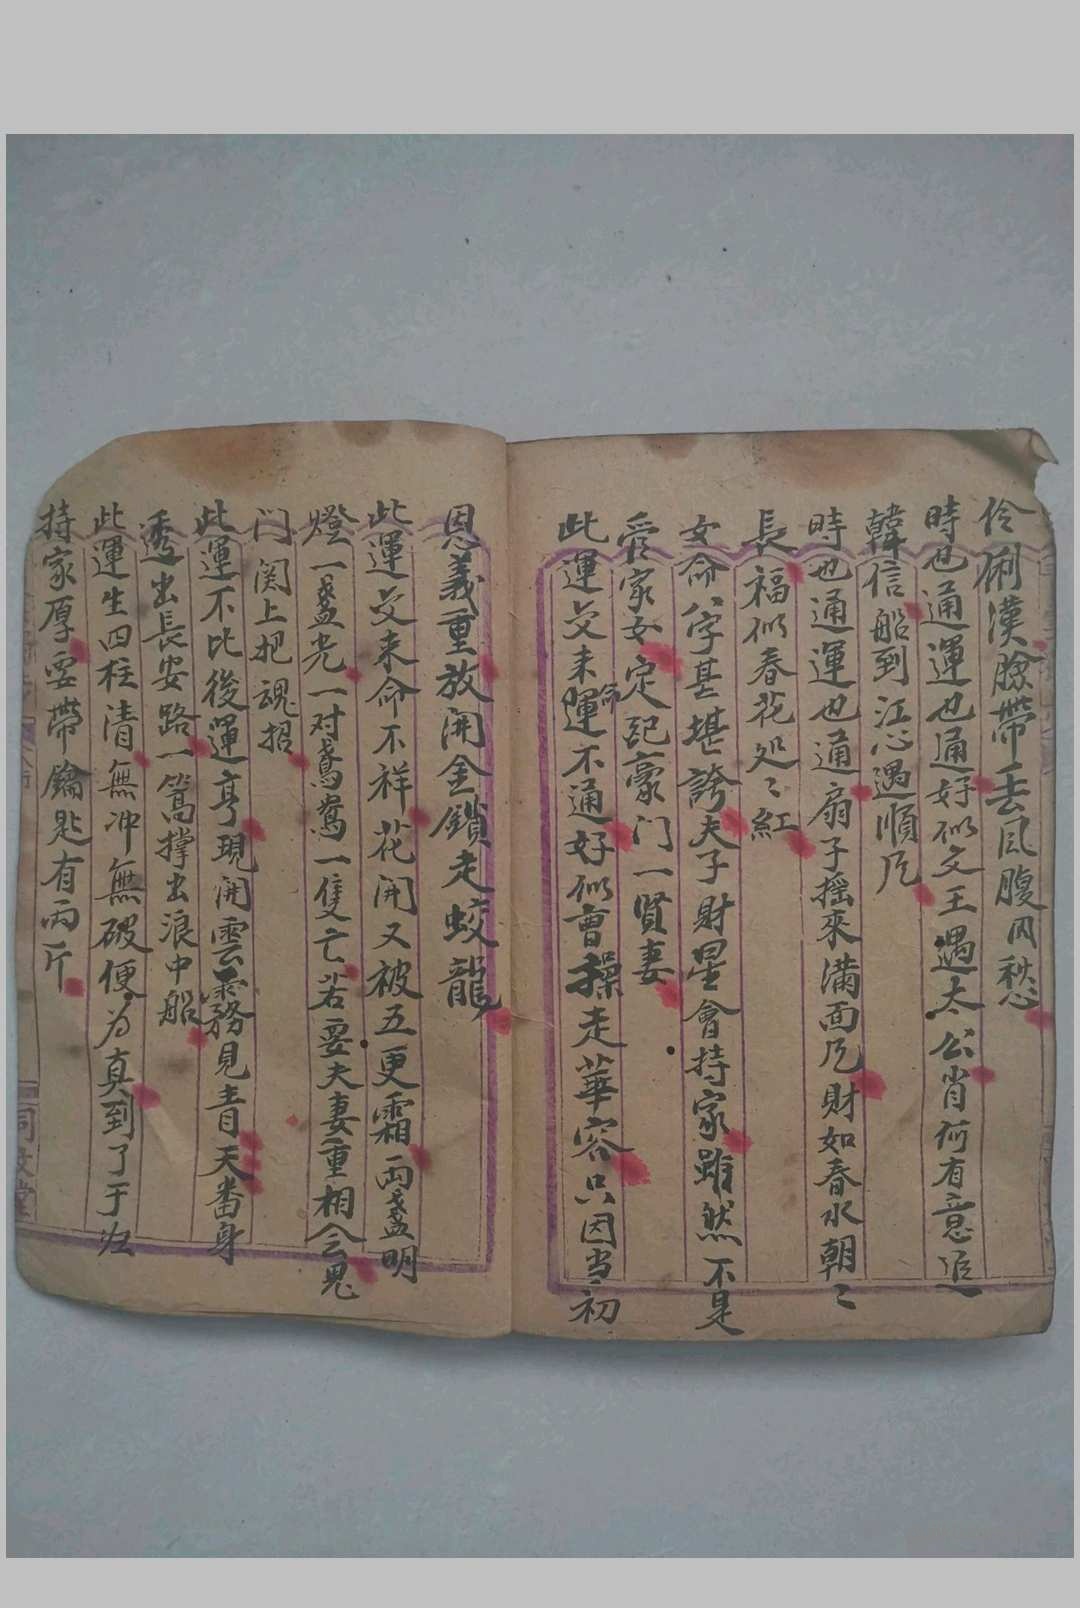 伶俐漢臉帶去風腹内愁
時也通運也通好似文王遇太公肖何有意追
韓信船到江心遇順風
時也通運也通扇子摇來滿面風財如春水朝〻
長福似春花処〻紅
女命八字甚堪誇夫子財星會持家雖然不是
官家女定配豪门一賢妻
此運交来命運不通好似曹操走華容只因当初
恩義重放開金鎖走蛟龍
此運交来命不祥花開又被五更霜兩盞明
燈一盞光一对鴛鴦一隻亡若要夫妻重相会鬼
门関上把魂招
此運不比後運亨現開雲霧見青天番身
透出長安路一篙撑出浪中船
此運生四柱清無冲無破便为真到了于归
持家厚要帶鑰匙有兩斤
同文堂